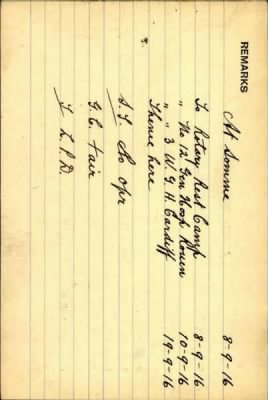 REMARKS
At Somme 8-9-16
To Rotary Rest Camp 8-9-16
" No 12 Gen Hosp Rouen 10-9-16
" " 3 W. G. H. Cardiff 19-9-16
Thence here
S.S. No opr
G.C. Fair
L.P.D.